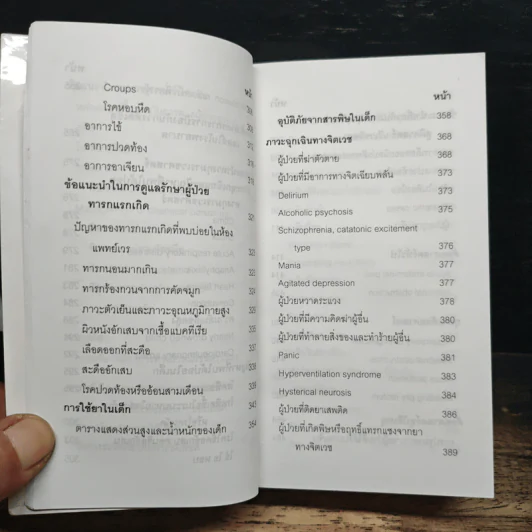 Croups
โรคหอบหืด
อาการไข้
อาการปวดท้อง
อาการอาเจียน
ข้อแนะนำในการดูแลรักษาผู้ป่วย
ทารกแรกเกิด 321
ปัญหาของทารกแรกเกิดที่พบบ่อยในห้อง
แพทย์เวร
ทารกนอนมากเกิน
ทารกร้องกวนจากการคัดจมูก
ภาวะตัวเย็นและภาวะอุณหภูมิกายสูง
ผิวหนังอักเสบจากเชื้อแบคทีเรีย
เลือดออกที่สะดือ
สะดืออักเสบ
โรคปวดท้องหรืออ้อนสามเดือน
การใช้ยาในเด็ก 343
ตารางแสดงส่วนสูงและน้ำหนักของเด็ก 354
หน้า
อุบัติภัยจากสารพิษในเด็ก 358
ภาวะฉุกเฉินทางจิตเวช 368
ผู้ป่วยที่ฆ่าตัวตาย 368
ผู้ป่วยที่มีอาการทางจิตเฉียบพลัน 373
Delirium 373
Alcoholic psychosis 375
Schizophrenia, catatonic excitement
type 376
Mania 377
Agitated depression 377
ผู้ป่วยหวาดระแวง 378
ผู้ป่วยที่มีความคิดฆ่าผู้อื่น 380
ผู้ป่วยที่ทำลายสิ่งของและทำร้ายผู้อื่น 380
Panic 381
Hyperventilation syndrome 383
Hysterical neurosis 384
ผู้ป่วยที่ติดยาเสพติด 386
ผู้ป่วยที่เกิดพิษหรือฤทธิ์แทรกแซงจากยา
ทางจิตเวช 389